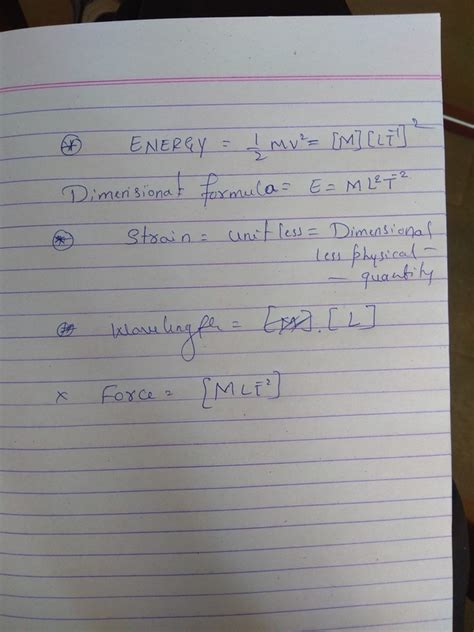 * ENERGY = 1/2 mv² = [M][LT⁻¹]²
Dimensional formula = E = ML²T⁻²
* Strain = unit less = Dimensional
less physical -
- quantity
* Wavelingth = [M].[L]
x Force = [MLT⁻²]